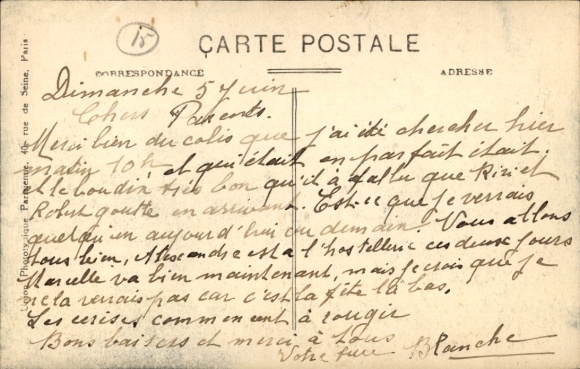 15
CARTE POSTALE
CORRESPONDANCE
ADRESSE
Dimanche 5 Juin
Chers Parents.
Merci bien du colis que j'ai été chercher hier
matin 10h et qui était en parfait était.
et le boudin très bon qu'il à fallu que Kiki et
Robert goutte en arrivant. Est-ce que je verrais
quelqu'un aujourd'hui ou demain? Vous allons
tous bien, Alexandre est a l'hostellerie ces deux jours
Marcelle va bien maintenant, mais je crois que je
ne la verrais pas car c'est la fête là bas.
Les cerises commencent à rougir
Bons baisers et merci à tous
Votre Blanche
Paris, 40 rue de Seine, Paris